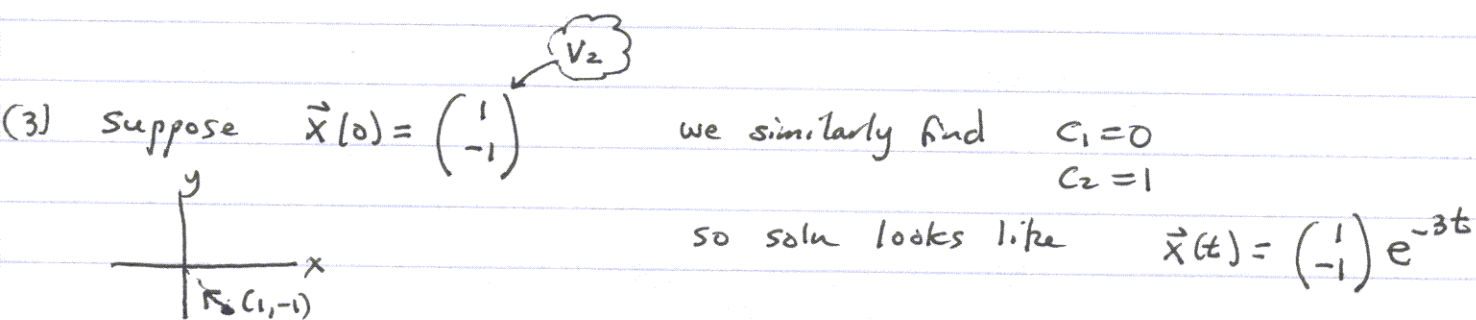 V₂
(3) Suppose x⃗(0) = (1 -1) we similarly find C₁ = 0
C₂ = 1
so soln looks like x⃗(t) = (1 -1) e^-3t
y
x
(1,-1)